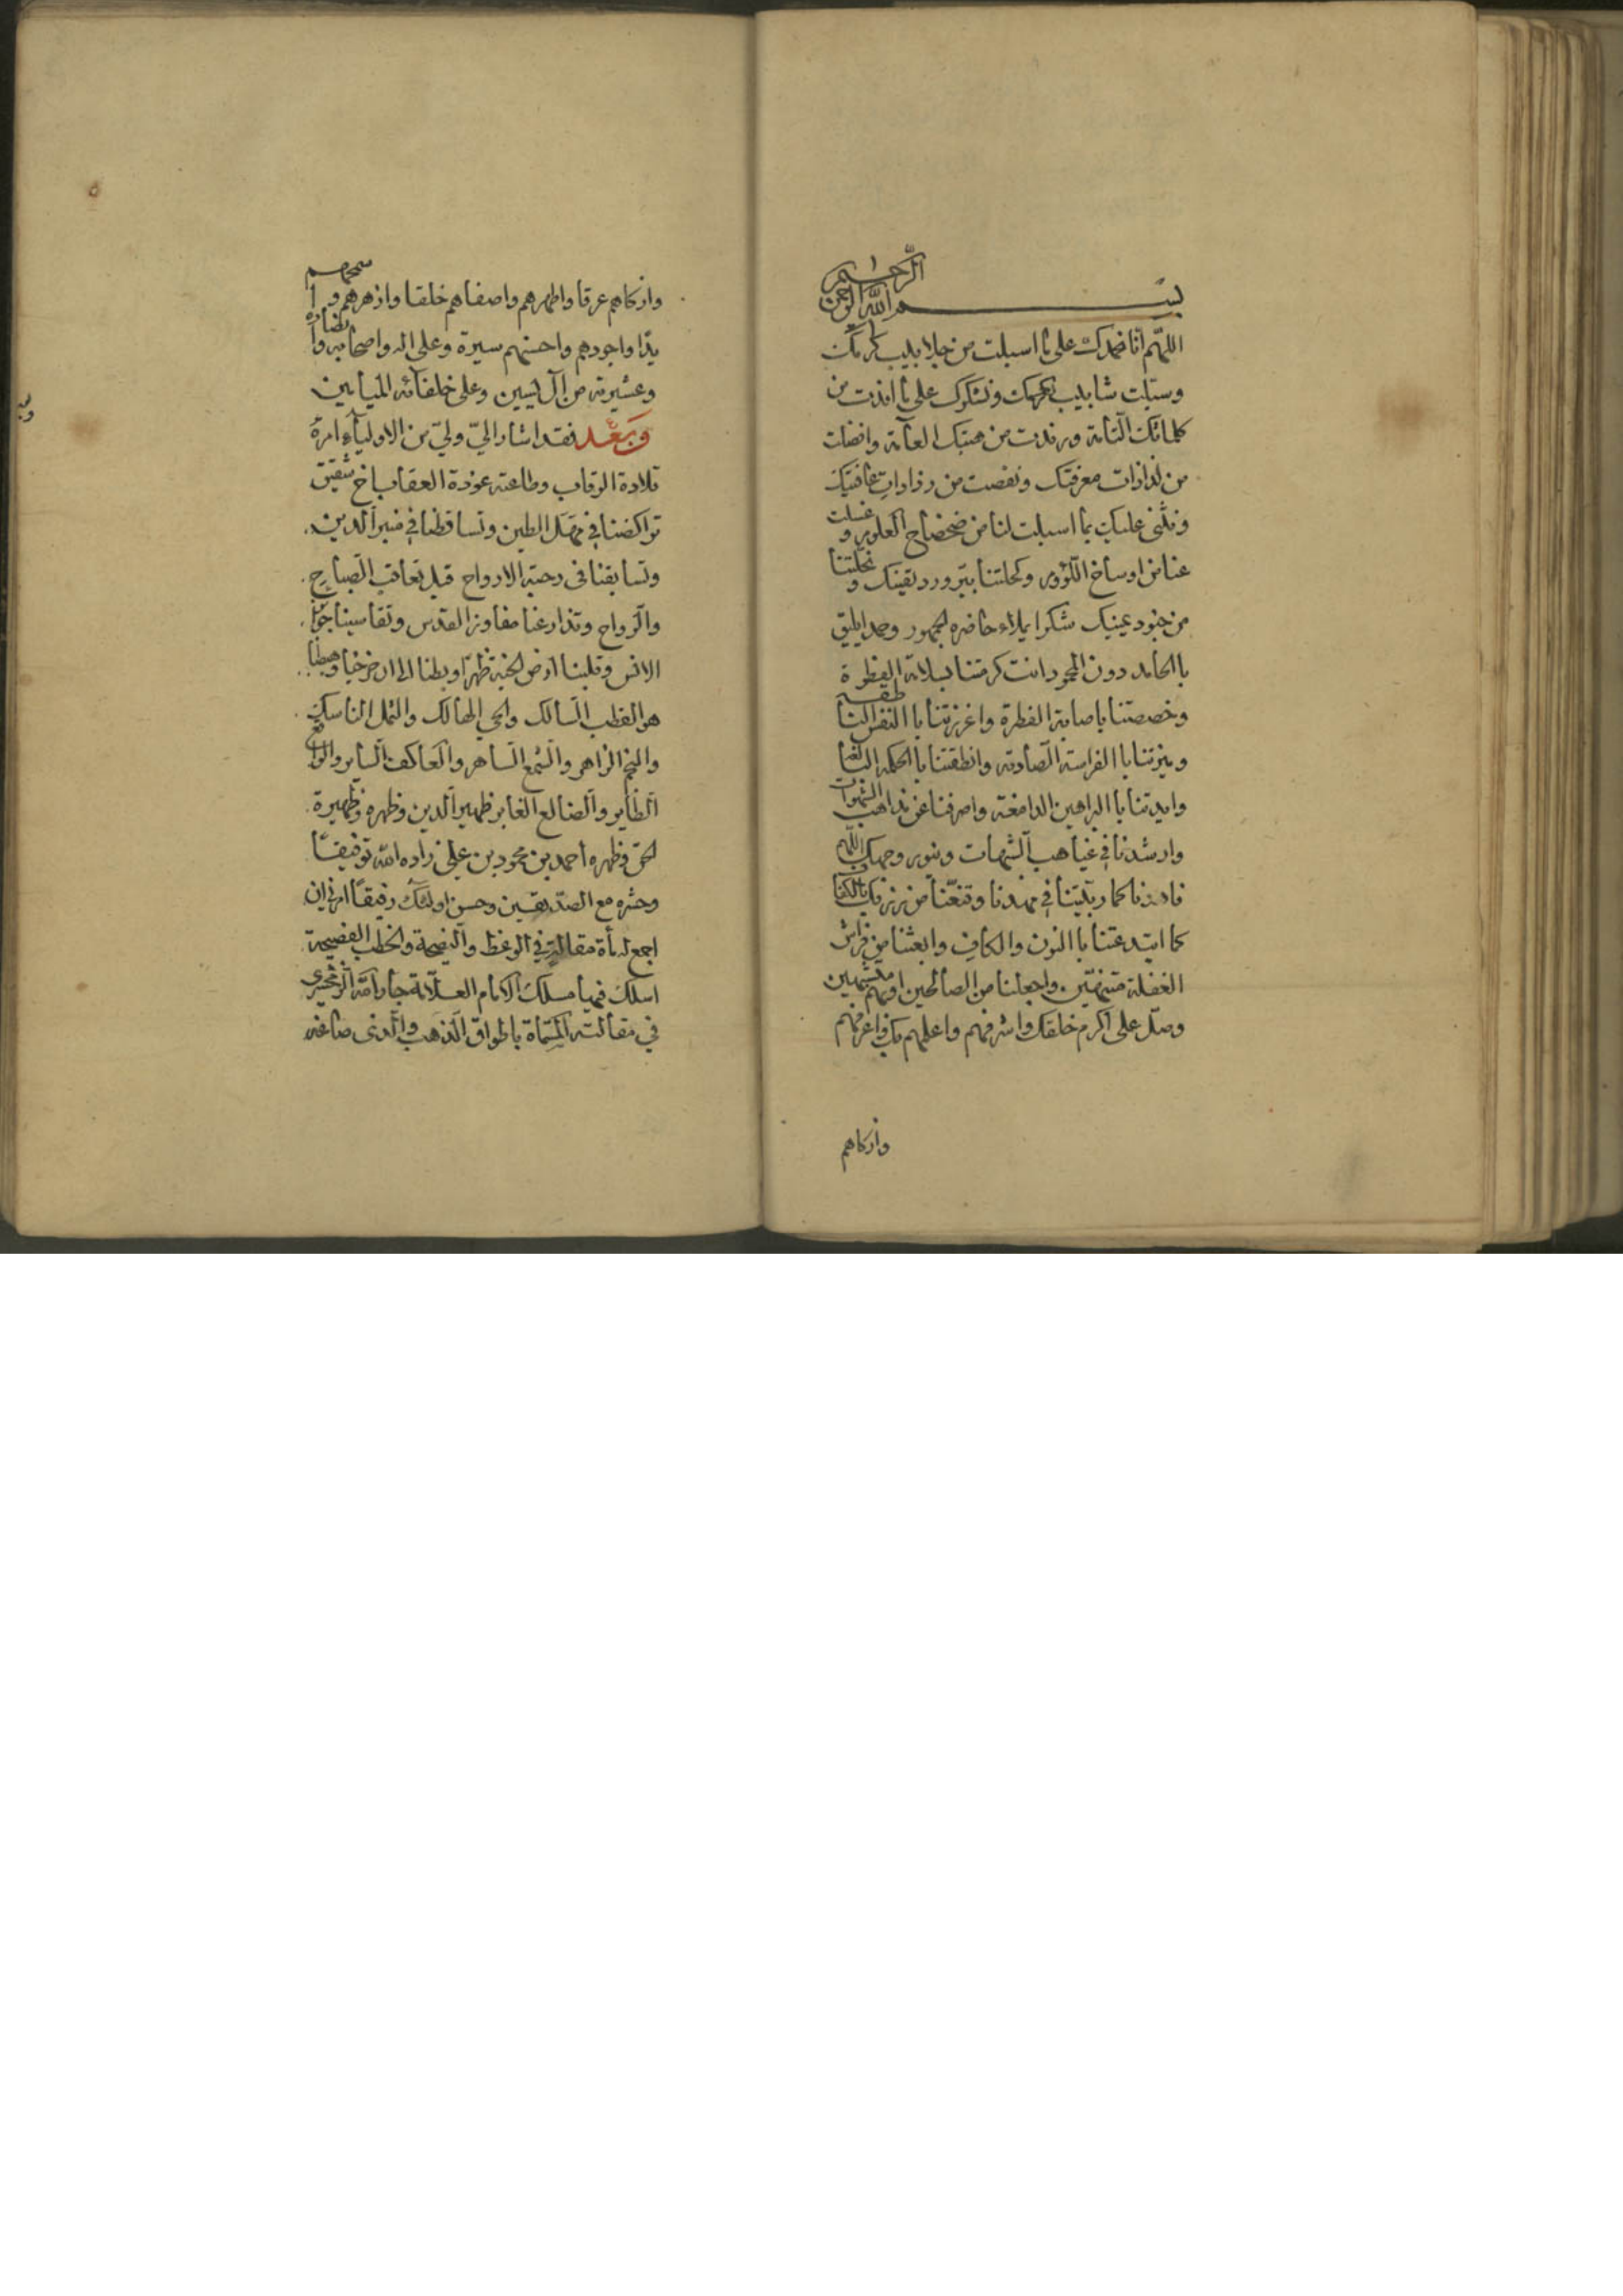 بسم الله الرحمن الرحيم
اللهم انا نحمدك على ما اسبلت من جلابيب كرمك
وسبلت شابيب نعمك ونشكرك على ما افدت من
كلماتك التامة ورفدت من همتك العامة وافضلت
من لذاذات معرفتك ونفضت من رذاذات عافيتك
ونثني عليك بما اسبلت لنا من ضحضاح العلوم وغسلت
عنا من اوساخ اللؤوم وكحلتنا ببرود يقينك و
من جنود عينك شكرا يملاء حاضره الجمهور وحمدا يليق
با الحامد دون المحمود انت كرمتنا بسلامة الفطرة
وخصصتنا باصابة الفطرة واعززتنا با النفس الناطقه
وميزتنا با الفراسة الصادقه وانطقتنا با الحكمه
وايدتنا با البراهين الدامغة واصرفنا عن مذاهب الشهوات
وارشدنا في غياهب الشبهات وبنور وجهك اللهم
فاهدنا كما ربيتنا في مهدنا وقنعنا من رزقك بالكفا
كما ابتدعتنا با النون والكاف وابعثنا من فراش
الغفلة متنبهين واجعلنا من الصالحين او بهم متشبهين
وصل على اكرم خلقك واشرفهم واعلمهم بك واعرفهم
وازكاهم
وازكاهم عرقا واطهرهم واصفاهم خلقا وازهرهم واسمحهم
يدا واجودهم واحسنهم سيرة وعلى اله واصحابه وانصاره
وعشيرته من آل يسين وعلى خلفائه الميامين
وبعد فقد اشار الي ولي من الاولياء امره
قلادة الرقاب وطاعته عوذة العقاب اخ شقيق
تراكضنا في مهل الطين وتساقطنا في منبر الدين
وتسابقنا في رحبة الارواح قبل تعاقب الصباح
والرواح وتذارعنا مفاوز القدس وتقاسينا
الانس وقلبنا ارض الخبة ظهرا وبطنا الى ان وهبطنا
هو القطب السالك والحي الهالك والثمل الناسك
والنجم الزاهر والشمع الساهر والعاكف الساير والواقع
الطاير والضالع الغابر ظهير الدين وظهره وظهيرة
الحق وظهره احمد بن محمود بن علي زاده الله توفيقا
وحشره مع الصديقين وحسن اولئك رفيقا امرني ان
اجمع له مأة مقالة في الوعظ والنصيحة والخطب الفصيحة
اسلك فيها مسلك الامام العلامة جار الله الزمخشري
في مقالته المسماة باطواق الذهب والذي صاغه